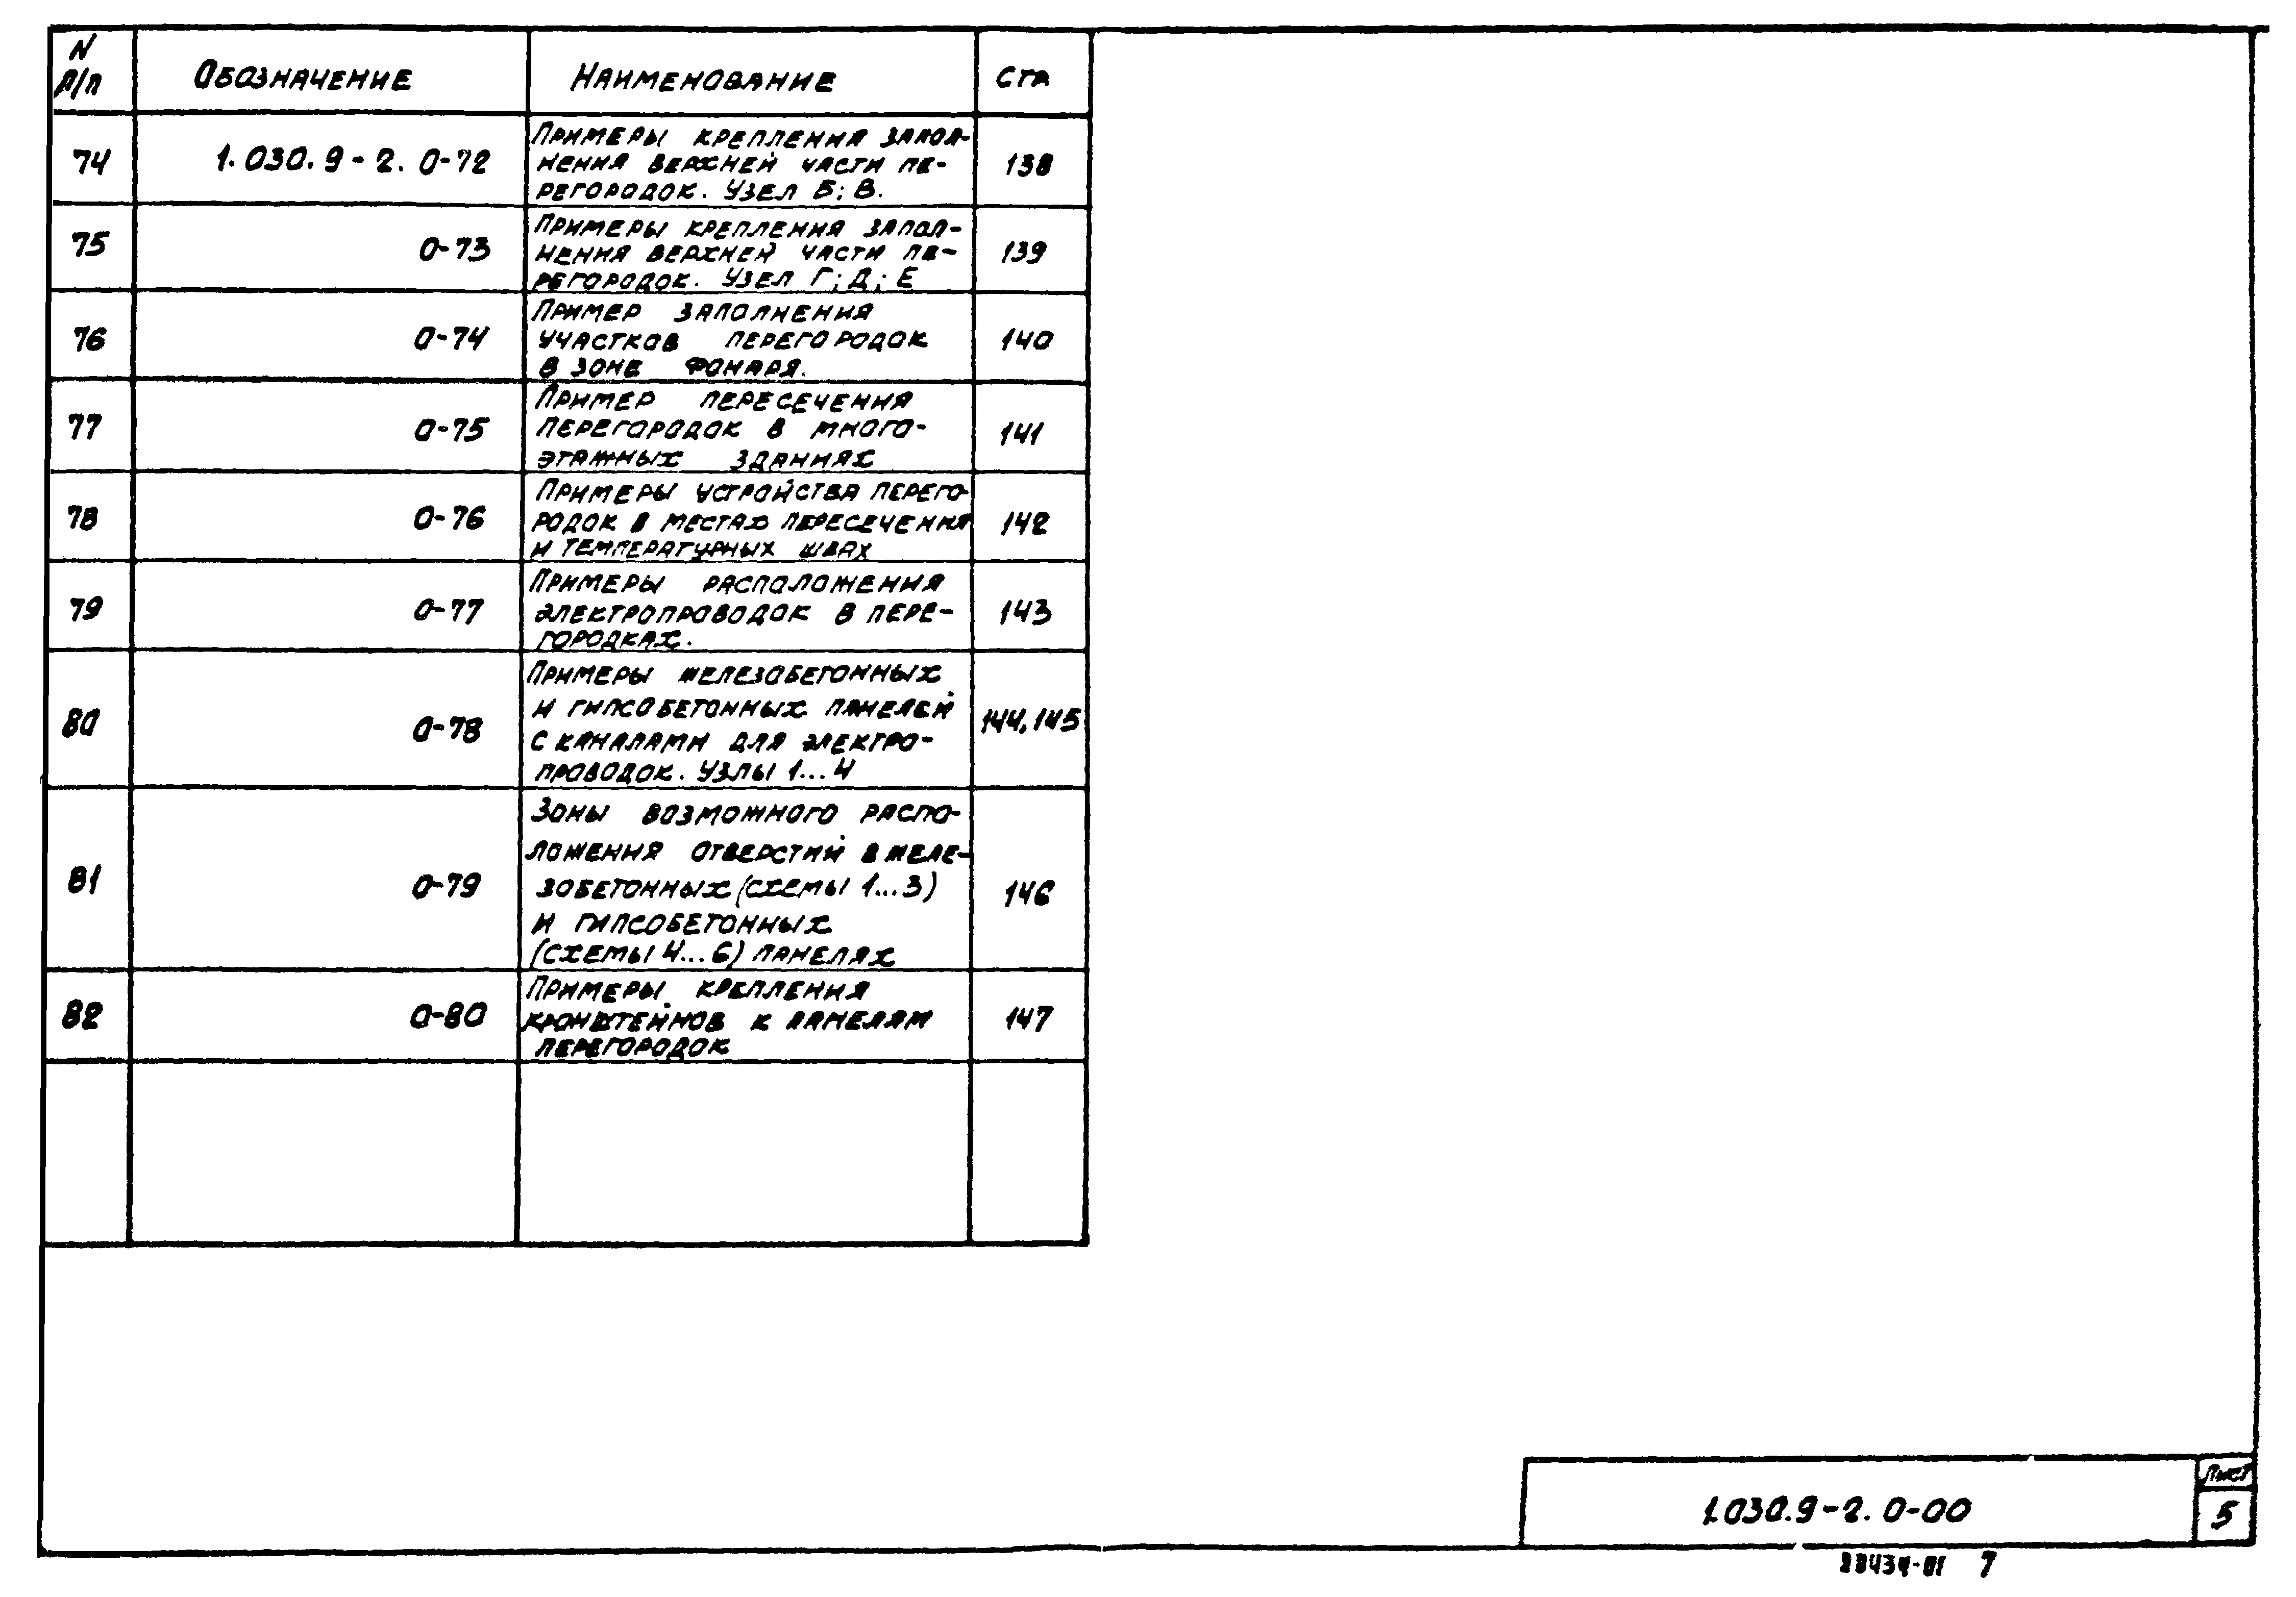 N
п/п
Обозначение
Наименование
Стр
74
1.030.9-2. 0-72
Примеры крепления запол-
нения верхней части пе-
регородок. Узел Б; В.
138
75
0-73
Примеры крепления запол-
нения верхней части пе-
регородок. Узел Г; Д; Е
139
76
0-74
Пример заполнения
участков перегородок
в зоне фонаря.
140
77
0-75
Пример пересечения
перегородок в много-
этажных зданиях
141
78
0-76
Примеры устройства перего-
родок в местах пересечения
и температурных швах
142
79
0-77
Примеры расположения
электропроводок в пере-
городках.
143
80
0-78
Примеры железобетонных
и гипсобетонных панелей
с каналами для электро-
проводок. Узлы 1...4
144,145
81
0-79
Зоны возможного распо-
ложения отверстий в желе-
зобетонных (схемы 1...3)
и гипсобетонных
(схемы 4...6) панелях
146
82
0-80
Примеры крепления
кронштейнов к панелям
перегородок
147
1.030.9-2. 0-00
Лист
5
7